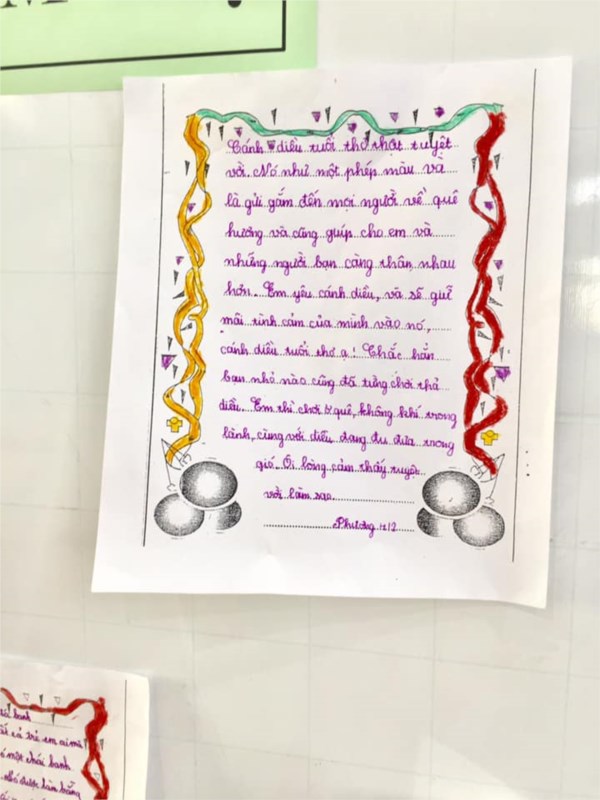 M
Cánh diều tuổi thơ thật tuyệt
vời. Nó như một phép màu và
là gửi gắm đến mọi người về quê
hương và cũng giúp cho em và
những người bạn càng thân nhau
hơn. Em yêu cánh diều, và sẽ giữ
mãi tình cảm của mình vào nó,
cánh diều tuổi thơ ạ! Chắc hẳn
bạn nhỏ nào cũng đã từng chơi thả
diều. Em thì chơi ở quê, không khí trong
lành, cùng với diều đang đu đưa trong
gió. Ôi lòng cảm thấy tuyệt
vời làm sao
Phương 4/2
banh
tất cả trẻ em
một chái banh
nhỏ được làm bằng